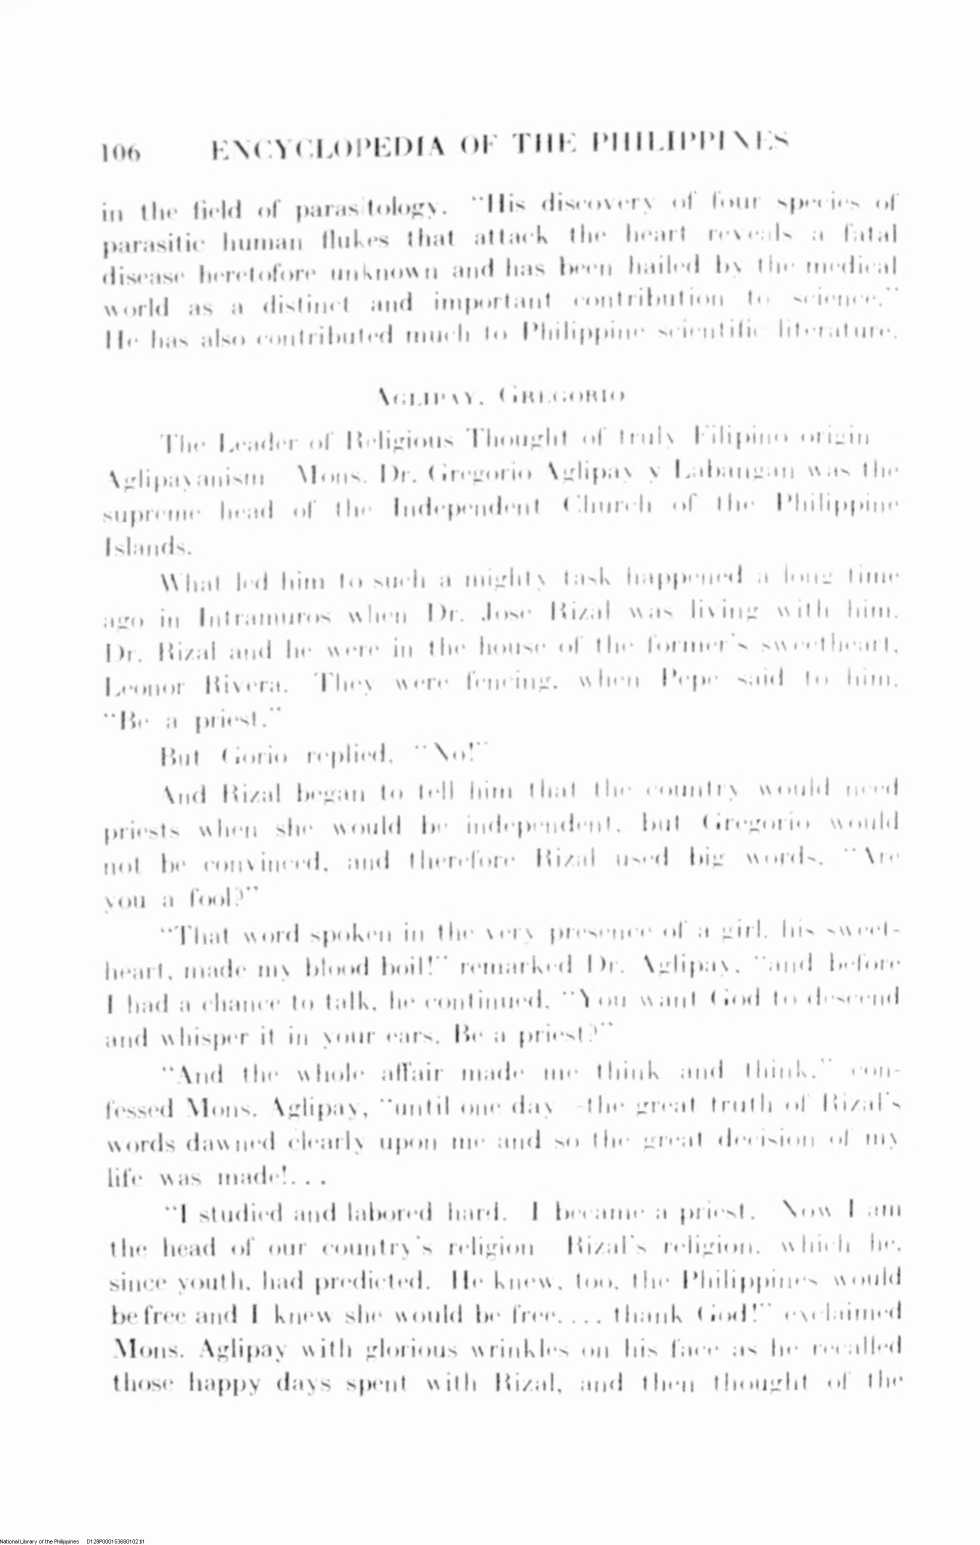 106 ENCYCLOPEDIA OF THE PHILIPPINES
in the field of parasitology. "His discovery of four species of
parasitic human flukes that attack the heart reveals a fatal
disease heretofore unknown and has been hailed by the medical
world as a distinct and important contribution to science."
He has also contributed much to Philippine scientific literature.
AGLIPAY, GREGORIO
The Leader of Religious Thought of truly Filipino origin
Aglipayanism Mons. Dr. Gregorio Aglipay y Labangan was the
supreme head of the Independent Church of the Philippine
Islands.
What led him to such a mighty task happened a long time
ago in Intramuros when Dr. Jose Rizal was living with him.
Dr. Rizal and he were in the house of the former's sweetheart,
Leonor Rivera. They were fencing, when Pepe said to him,
"Be a priest."
But Gorio replied, "No!"
And Rizal began to tell him that the country would need
priests when she would be independent, but Gregorio would
not be convinced, and therefore Rizal used big words. "Are
you a fool?"
"That word spoken in the very presence of a girl, his sweet-
heart, made my blood boil!" remarked Dr. Aglipay, "and before
I had a chance to talk, he continued, "You want God to descend
and whisper it in your ears, Be a priest?"
"And the whole affair made me think and think," con-
fessed Mons. Aglipay, "until one day -the great truth of Rizal's
words dawned clearly upon me and so the great decision of my
life was made!...
"I studied and labored hard. I became a priest. Now I am
the head of our country's religion Rizal's religion, which he,
since youth, had predicted. He knew, too, the Philippines would
be free and I knew she would be free.... thank God!" exclaimed
Mons. Aglipay with glorious wrinkles on his face as he recalled
those happy days spent with Rizal, and then thought of the
National Library of the Philippines